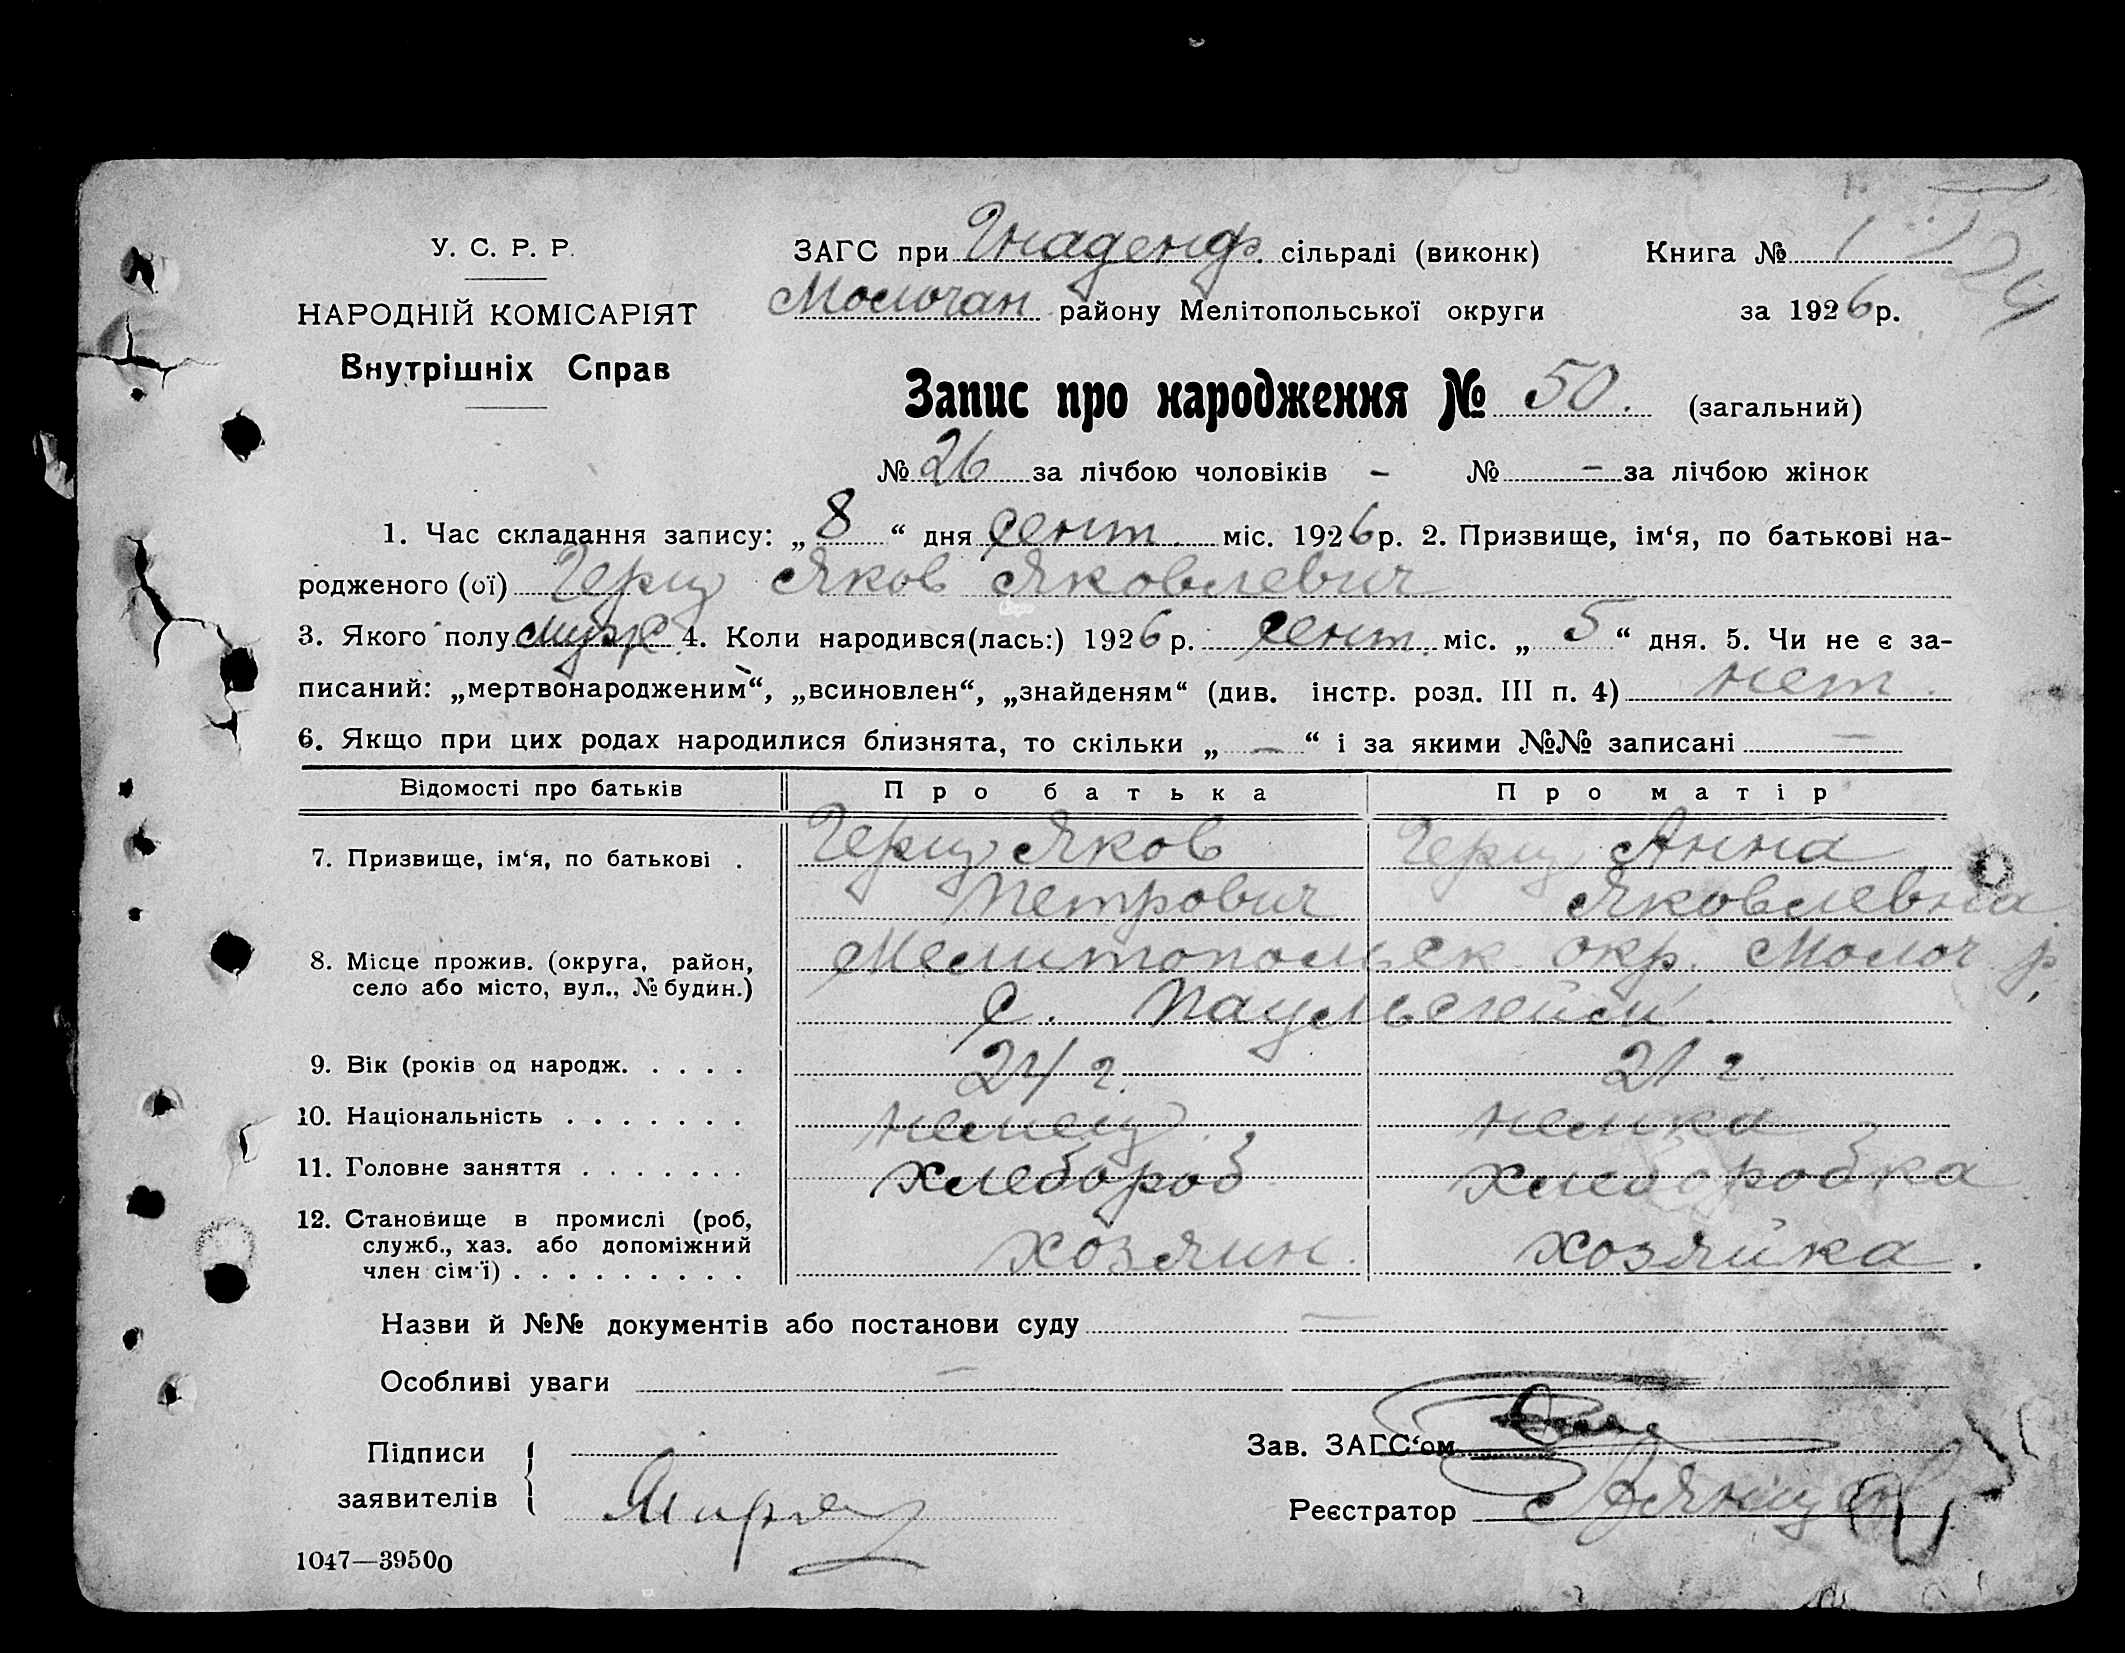 У. С. Р. Р.
НАРОДНІЙ КОМІСАРІЯТ
Внутрішніх Справ
ЗАГС при Гнаденф. сільраді (виконк)
Молочан району Мелітопольської округи
Книга № 1
за 1926 р.
Запис про народження № 50. (загальний)
№ 26 за лічбою чоловіків - № - за лічбою жінок
1. Час складання запису: „ 8 “ дня сент. міс. 1926 р. 2. Призвище, ім‘я, по батькові на-
родженого (ої) Герц Яков Яковлевич
3. Якого полу муж. 4. Коли народився(лась:) 1926 р. сент. міс. „ 5 “ дня. 5. Чи не є за-
писаний: „мертвонародженим“, „всиновлен“, „знайденям“ (див. інстр. розд. III п. 4) нет.
6. Якщо при цих родах народилися близнята, то скільки „ — “ і за якими №№ записані —
Відомості про батьків Про батька Про матір
7. Призвище, ім‘я, по батькові . Герц Яков Герц Анна
Петрович Яковлевна
8. Місце прожив. (округа, район, Мелитопольск окр. Молоч р.
село або місто, вул., № будин.) с. Паульсгейм.
9. Вік (років од народж. . . . . 24 г. 21 г.
10. Національність . . . . . . . немец. немка
11. Головне заняття . . . . . . . хлебороб хлеборобка
12. Становище в промислі (роб,
служб., хаз. або допоміжний
член сім‘ї) . . . . . . . . . хозяин. хозяйка.
Назви й №№ документів або постанови суду —
Особливі уваги —
Підписи
заявителів
Зав. ЗАГС‘ом
Реєстратор
1047—39500